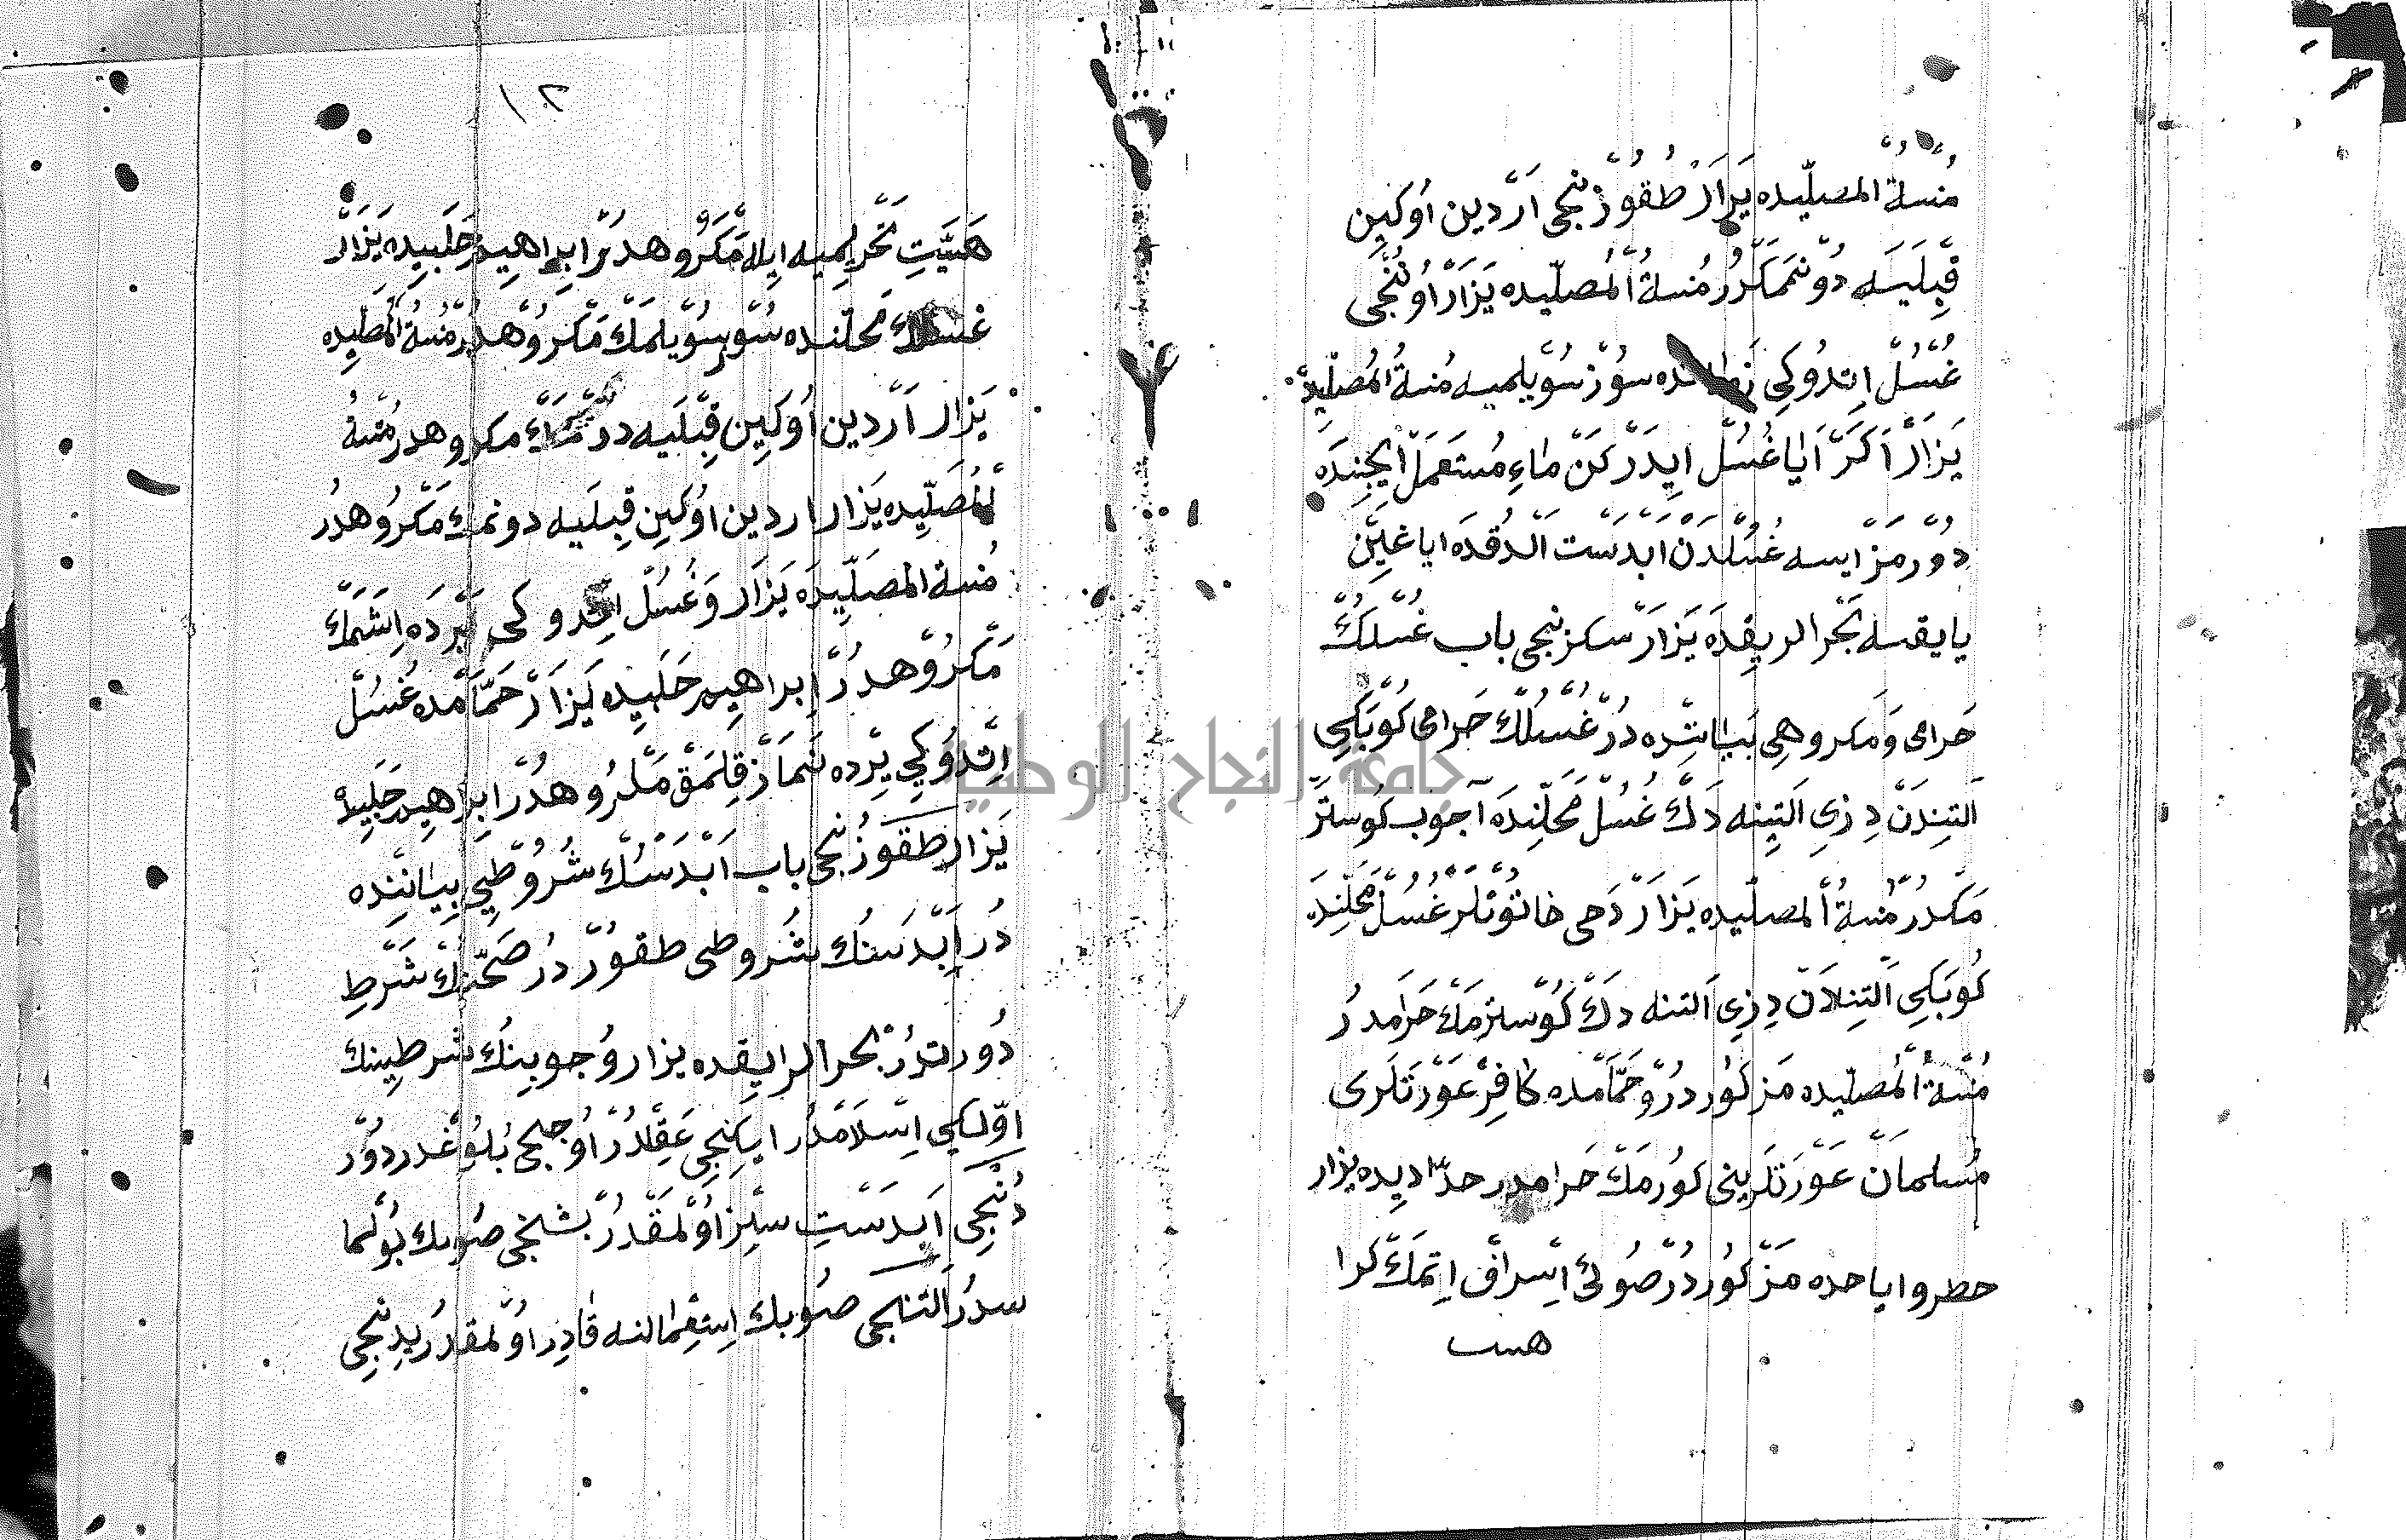 مُنْسةُ المصلّيده يَزَارْ طقوُزنجى اَرْدين اُوكَيِن
قِبلَيَه دُونمكرُرْ مُنسةُ الْمُصلّيده يَزَارْ اوُننْجُى
غُسُلْ اِتدُوكى سوُزْ سُويلميه مُنسةُ الْمُصلّيده
يَزَارْ اَكَرْ اَيَاغُسُلْ ايِدَرْكَنْ مَاءِ مُستَعمَلْ ايچِنِدَه
دوُرمَزْ ايسه غُسْلدَنْ ابدَسْت اَلدُقدَه اياغِيَنْ
يايقسه بَحْر الريِقدَه يَزَارْ سكزنجى باب غُسْلكْ
حَرامى وَمكروهِى بَيَانِنْده دُرْ غُسْلُكْ حَرامى كوُبَكِى
اَلتِندَنْ دِزىِ اَلتِينه دَكْ غُسُلْ مَحلّنِدَه آچوب كوُستَرْ
مَكدُرْ مُنسةُ الْمصلّيده يَزَارْ دَحى خاتوُنلَرْ غُسُلْ مَحلّنِدَه
كُوبَكِى اَلْتِنِلاَنْ دِزِى اَلتنه دَكْ كُوسْتَرْمَكْ حَرَامدُر
مُنْسةُ الْمُصلّيده مَزكوُر دُرْ وَحَمَّامْده كَافِرْ عَوْرَتلَرى
مُسلمانْ عَوْرَتلَرينى كوُرمَكْ حَرامدر حدّاديده يزار
حظروا ياحده مَزْكوُر دُرْ صُوئى اِسْرافْ اِتمَكْ كرا
هيت
١٢
هَيَّتِ تَحْرِيميه ايلهْ مَكْرُوهدُرْ اِبراهِيمْ حَلَبِيده يَزَارْ
غسلكْ مَحلّنده سُوسوُيلمَكْ مَكْرُوهدُرْ مُنْسةُ الْمُصلّيده
يَزَارْ اَرْدين اُوكَيِن قِبْلَيه مكروهدر مُنْسةُ
الْمُصَلّيِده يَزَارْ اردين اوُكَيِن قِبلَيه دونمك مَكْرُوهدُر
مُنسة المصَلّيِدَه يَزَارْ وَغُسُلْ اتدوكى يَرْدَه اِشَمَكْ
مَكْرُوهدُرْ اِبراهيم حَلَبيِده يَزَارْ حَمَّامْده غُسُلْ
اِتدُوكِى يِرْده نَمَازْ قِلمَقْ مَكْرُوهدُرْ اِبراهيم حَلَبيِده
يَزَارْ طقوُزنجى باب اَبْدَسْتُكْ شُرُوطِى بِيَانِنْده
دُرْ اَبْدَستُكْ شُرُوطى طقوُرْ دُر صَحّتِنِكْ شَرْطِ
دُورتدُرْ بَحْر الرايِقِده يزار وُجوبِنُكْ شرطِينِكْ
اوّلكِى اِسْلاَمْدُر ايكِنجِى عَقِلْدُرْ اُوچنجى بُلوُغدر دوُرْ
دُنْجِى اَبدَسْتِ سِزْ اوُلمَقْدُرْ بشنجى صُوبك بوُلما
سدُرْ اَلتنجى صُوبك اِستِعمالنه قَادِر اوُلمقدُر يِدِنجِى